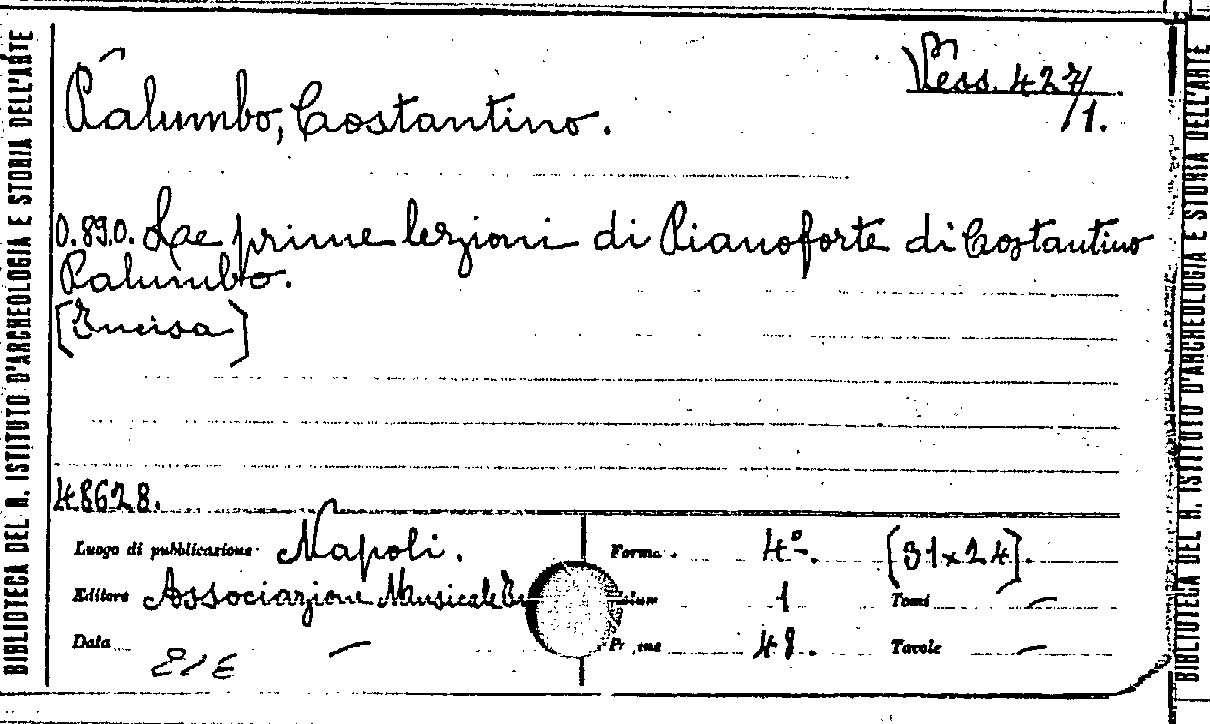 BIBLIOTECA DEL R. ISTITUTO D'ARCHEOLOGIA E STORIA DELL'ARTE
Palumbo, Costantino.
Vess. 427/1.
0.89.0. Le prime lezioni di Pianoforte di Costantino
Palumbo.
[Incisa]
48628.
Luogo di pubblicazione Napoli.
Forma 4º. [31x24].
Editore Associazione Musicale
1 Tomi —
Data —
48. Tavole —
BIBLIOTECA DEL R. ISTITUTO D'ARCHEOLOGIA E STORIA DELL'ARTE